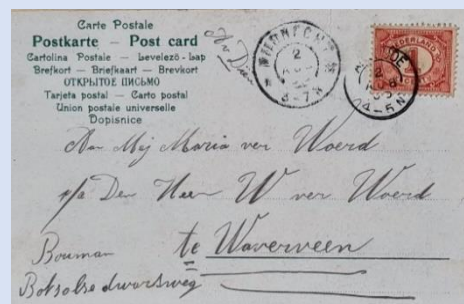 Carte Postale
Postkarte – Post card
Cartolina Postale – Levelező-Lap
Brefkort – Briefkaart – Brevkort
ОТКРЫТОЕ ПИСЬМО
Tarjeta postal – Carto postal
Union postale universelle
Dopisnice
NEDERLAND
1
2
5-7N
4-5N
Aan Mej Maria ver Woerd
p/a Den Heer W ver Woerd
te Waverveen
Bouman